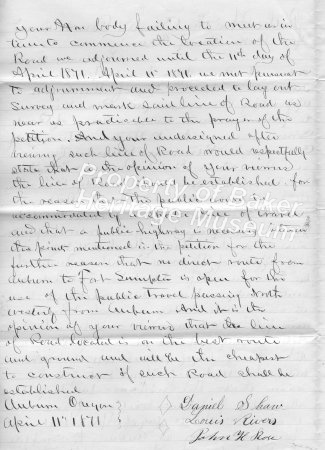 your Hon body failing to meet us in
time to commence the location of the
Road we adjourned until the 11th day of
April 1871. April 11" 1871. we met pursuant
to adjournment and proceeded to lay out
Survey and mark said line of Road as
near as practicable to the prayer of the
petition. And your undersigned after
viewing such line of Road would respectfully
state that in the opinion of your viewers
the line of Road should be established for
the reason that the public would be
accommodated by line of travel
and that a public highway is necessary
the points mentioned in the petition for the
further reason that no direct route from
Auburn to Fort Sumpter is open for the
use of the public travel passing North
westerly from Auburn And it is the
opinion of your viewers that the line
of Road located is on the best route
and ground and will be the cheapest
to construct if such Road shall be
established
Auburn Oregon } Daniel Shaw
April 11" 1871 } Louis Rivers
John H
Property of Baker
Heritage Museum